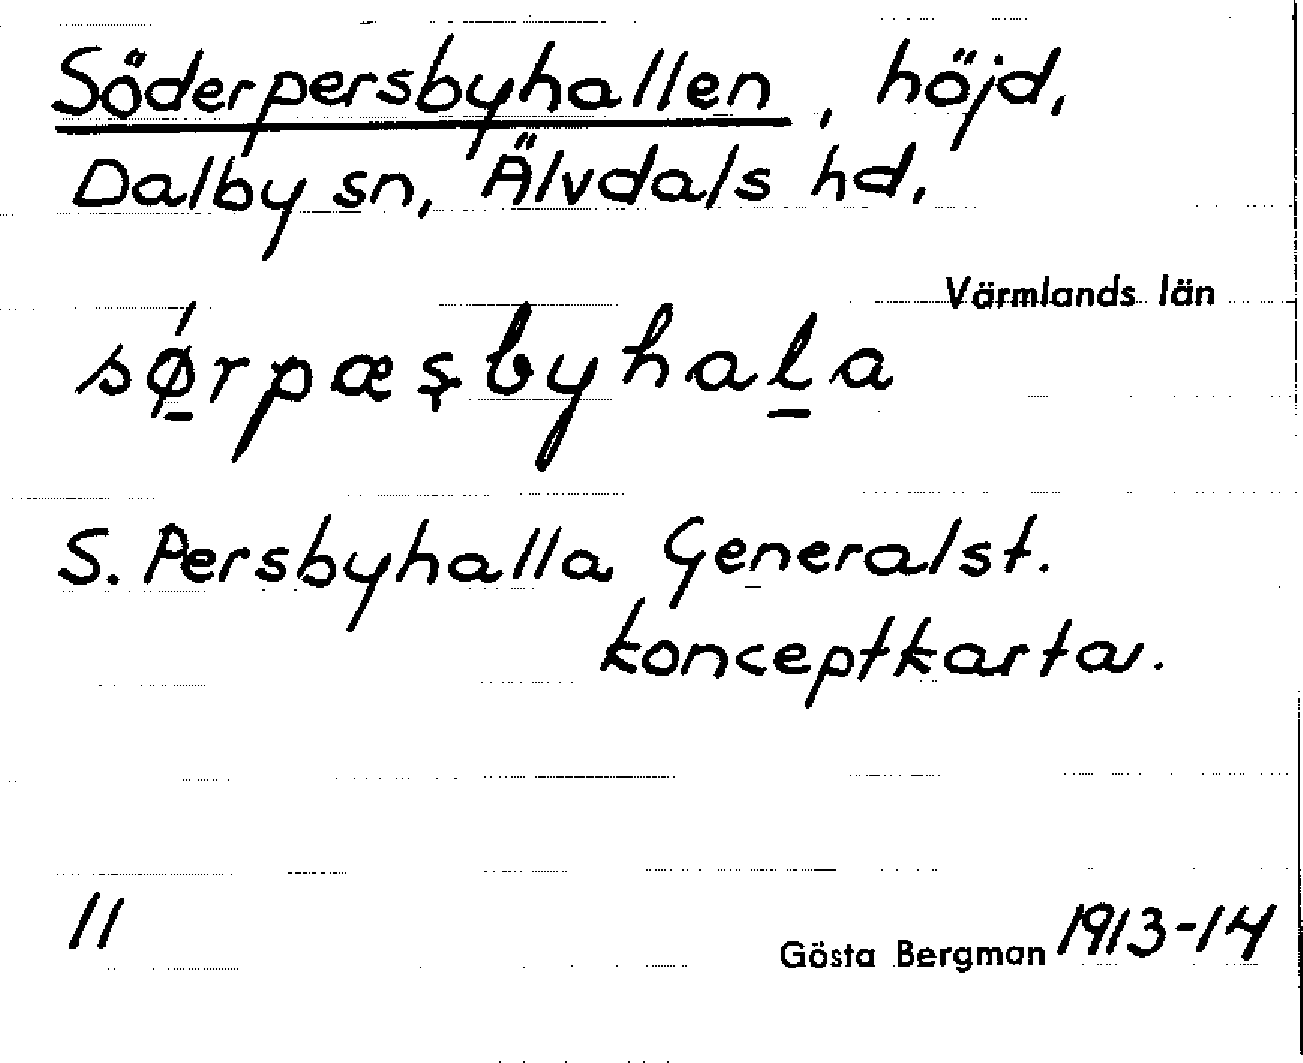 Söderpersbyhallen, höjd,
Dalby sn, Älvdals hd,
Värmlands län
sǿ̱rpæʂbyhaḻa
S. Persbyhalla Generalst.
konceptkarta.
11
Gösta Bergman 1913-14